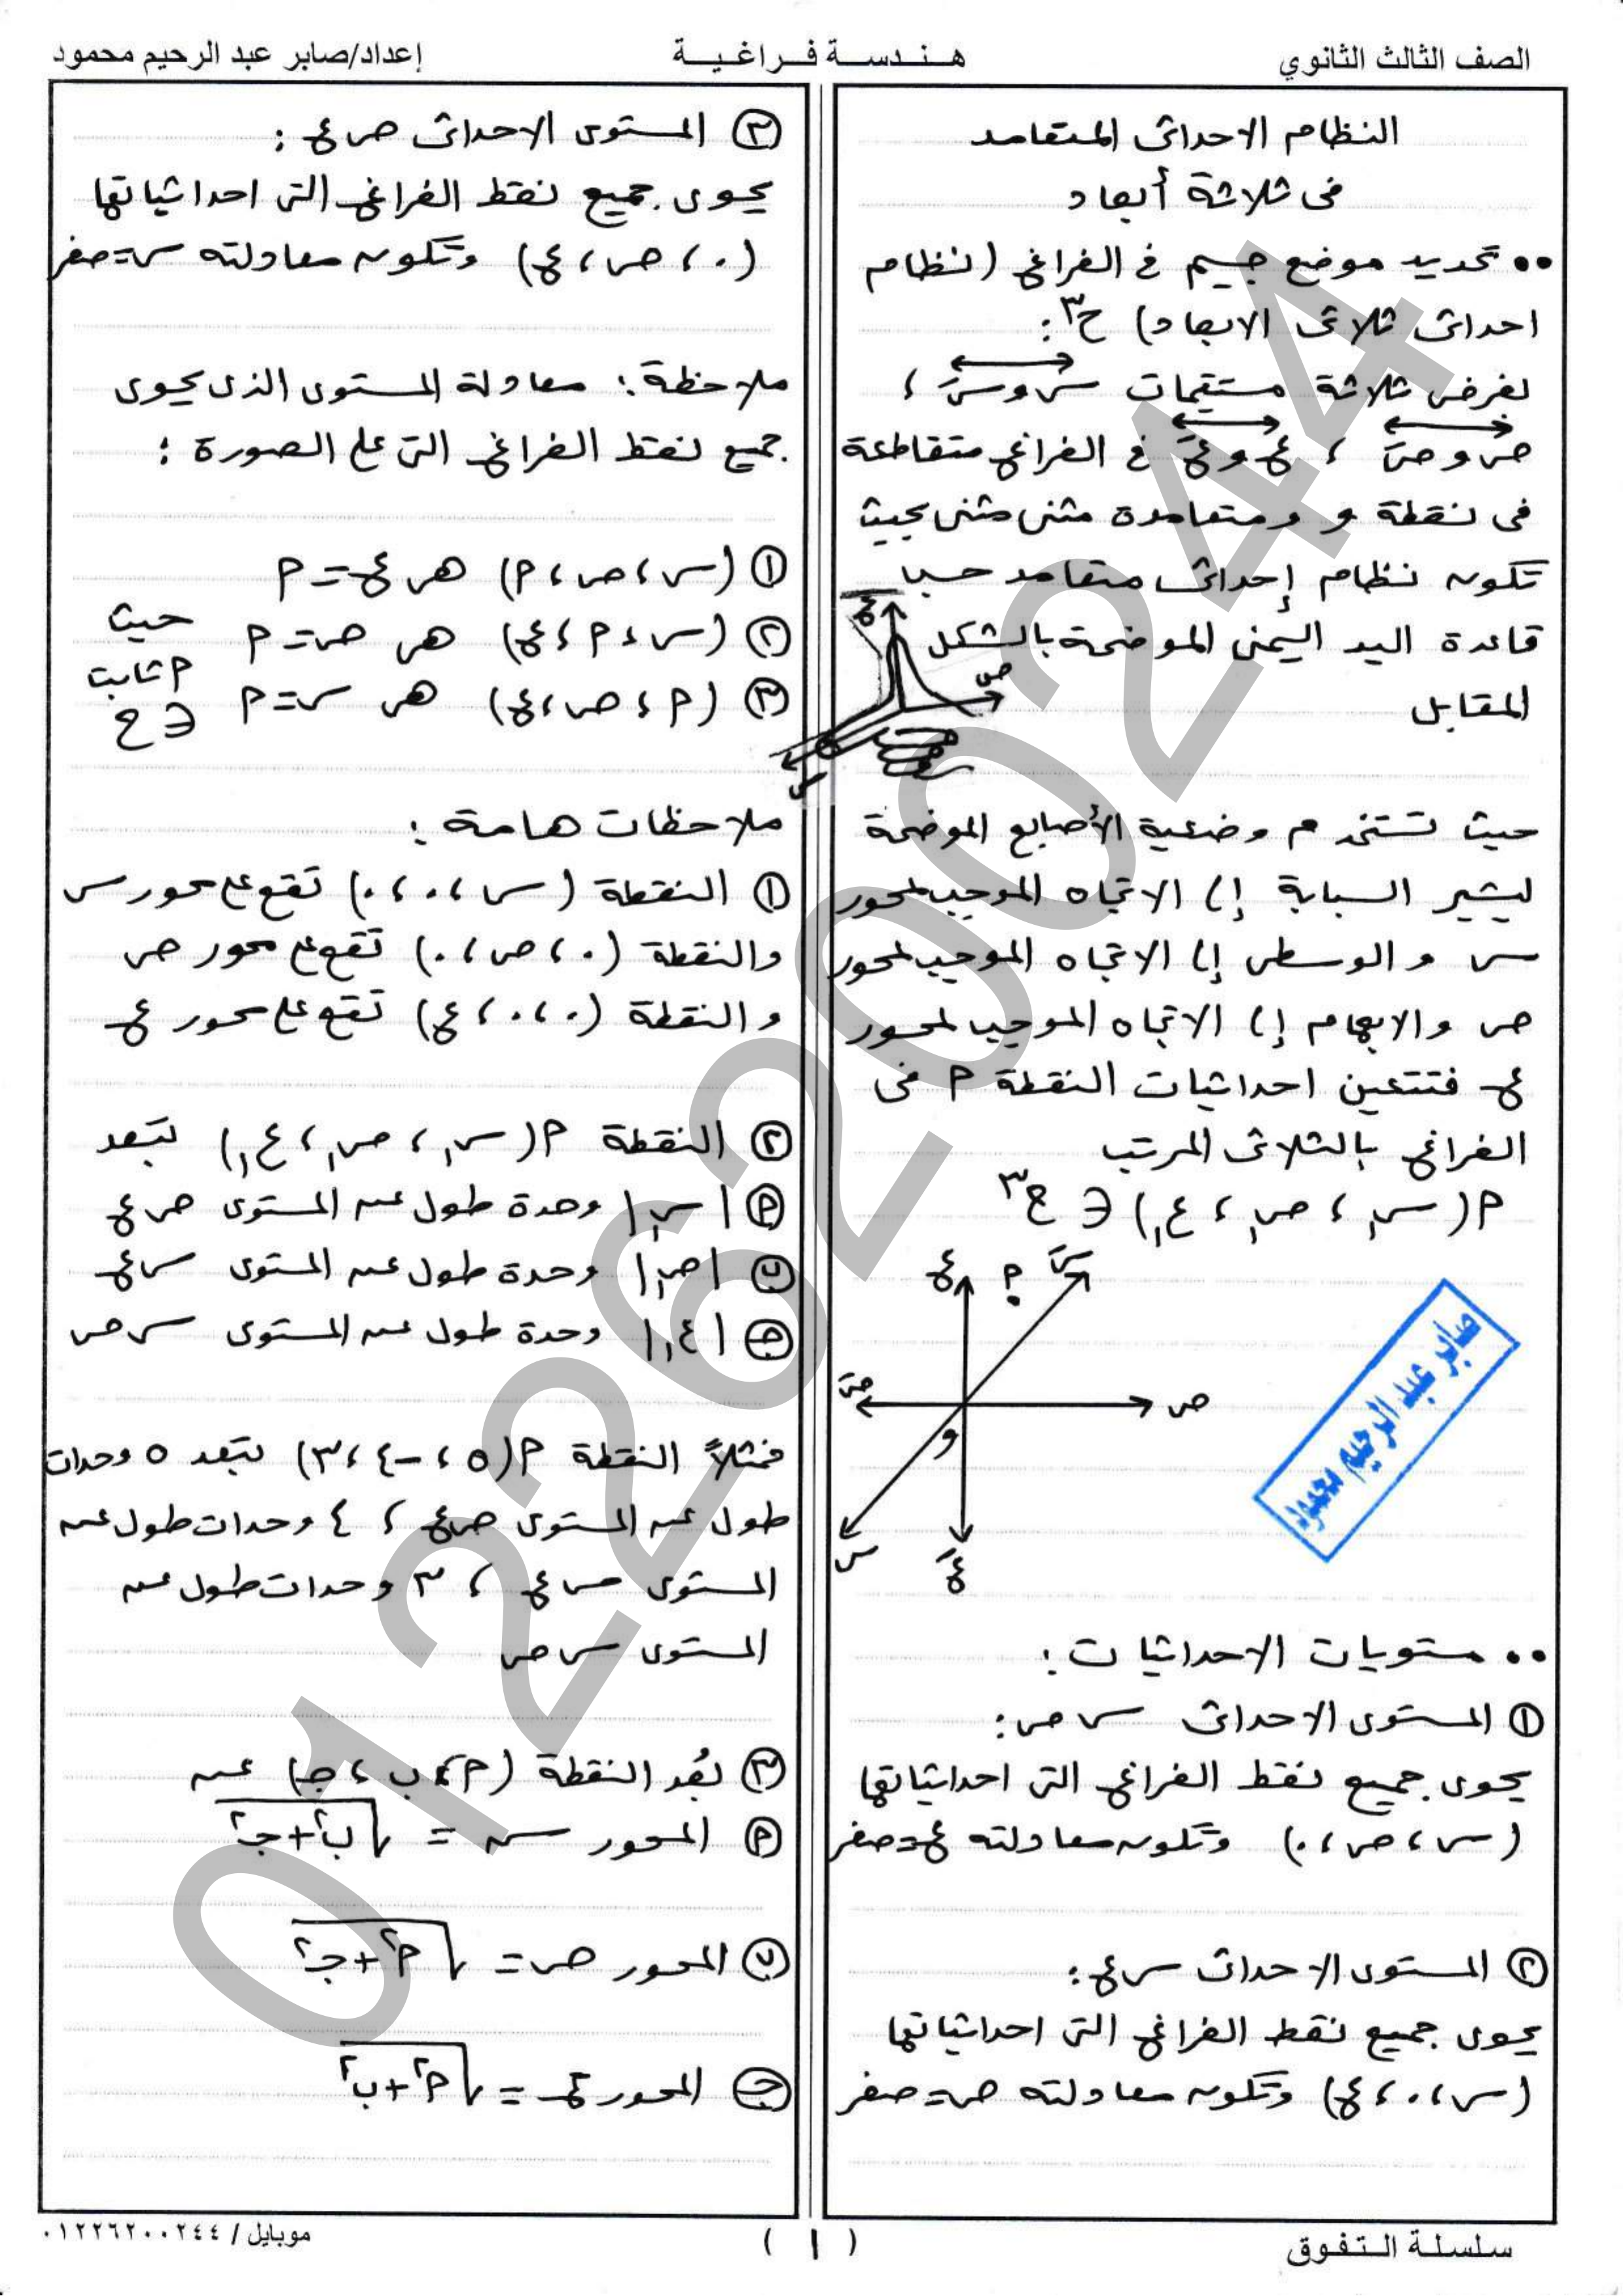 الصف الثالث الثانوي
هندسة فراغية
إعداد/صابر عبد الرحيم محمود
النظام الاحداثى المتعامد
فى ثلاثة أبعاد
•• تحديد موضع جسيم فى الفراغ (نظام
احداثى ثلاثى الابعاد) ح٣:
بفرض ثلاثة مستقيمات س و سَ ،
ص و صَ ، ع و عَ فى الفراغ متقاطعة
فى نقطة و ومتعامدة مثنى مثنى بحيث
تكون نظام إحداثى متعامد حسب
قاعدة اليد اليمنى الموضحة بالشكل
المقابل
ع
ص
س
حيث تستخدم وضعية الأصابع الموضحة
ليشير السبابة إلى الاتجاه الموجب لمحور
س والوسطى إلى الاتجاه الموجب لمحور
ص والابهام إلى الاتجاه الموجب لمحور
ع فتتعين احداثيات النقطة ٢ فى
الفراغ بالثلاثى المرتب
٢(س١ ، ص١ ، ع١) ∈ ح٣
ع
٢
سَ
صَ
ص
و
س
عَ
صابر عبد الرحيم محمود
•• مستويات الاحداثيات:
١ المستوى الاحداثى س ص:
يحوى جميع نقط الفراغ التى احداثياتها
(س ، ص ، ٠) وتكون معادلته ع = صفر
٢ المستوى الاحداثى س ع:
يحوى جميع نقط الفراغ التى احداثياتها
(س ، ٠ ، ع) وتكون معادلته ص = صفر
٣ المستوى الاحداثى ص ع:
يحوى جميع نقط الفراغ التى احداثياتها
(٠ ، ص ، ع) وتكون معادلته س = صفر
ملاحظة: معادلة المستوى الذى يحوى
جميع نقط الفراغ التى على الصورة:
١ (س ، ص ، ٢) هى ع = ٢
٢ (س ، ٢ ، ع) هى ص = ٢
٣ (٢ ، ص ، ع) هى س = ٢
حيث
٢ ثابت
∈ ح
ملاحظات هامة:
١ النقطة (س ، ٠ ، ٠) تقع على محور س
والنقطة (٠ ، ص ، ٠) تقع على محور ص
والنقطة (٠ ، ٠ ، ع) تقع على محور ع
٢ النقطة ٢(س١ ، ص١ ، ع١) تبعد
٢ |س١| وحدة طول عن المستوى ص ع
ب |ص١| وحدة طول عن المستوى س ع
ج |ع١| وحدة طول عن المستوى س ص
فمثلاً النقطة ٢(٥ ، -٤ ، ٣) تبعد ٥ وحدات
طول عن المستوى ص ع ، ٤ وحدات طول عن
المستوى س ع ، ٣ وحدات طول عن
المستوى س ص
٣ بُعد النقطة (٢ ، ب ، ج) عن
٢ المحور س = √(ب٢ + ج٢)
ب المحور ص = √(٢٢ + ج٢)
ج المحور ع = √(٢٢ + ب٢)
سلسلة التفوق
(١)
موبايل / ٠١٢٢٦٢٠٠٢٤٤
01226200244